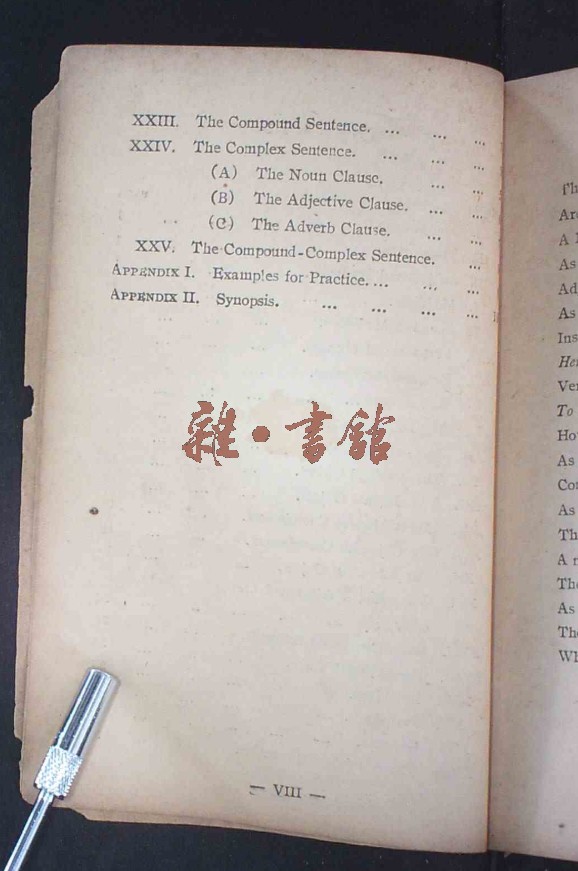 XXIII. The Compound Sentence. ... ... ...
XXIV. The Complex Sentence. ... ... ...
(A) The Noun Clause. ... ...
(B) The Adjective Clause. ... ...
(C) The Adverb Clause. ... ...
XXV. The Compound-Complex Sentence. ...
APPENDIX I. Examples for Practice. ... ... ...
APPENDIX II. Synopsis. ... ... ... ...
雜·書館
— VIII —
As
Ad
As
Ver
To
As
As
Th
As